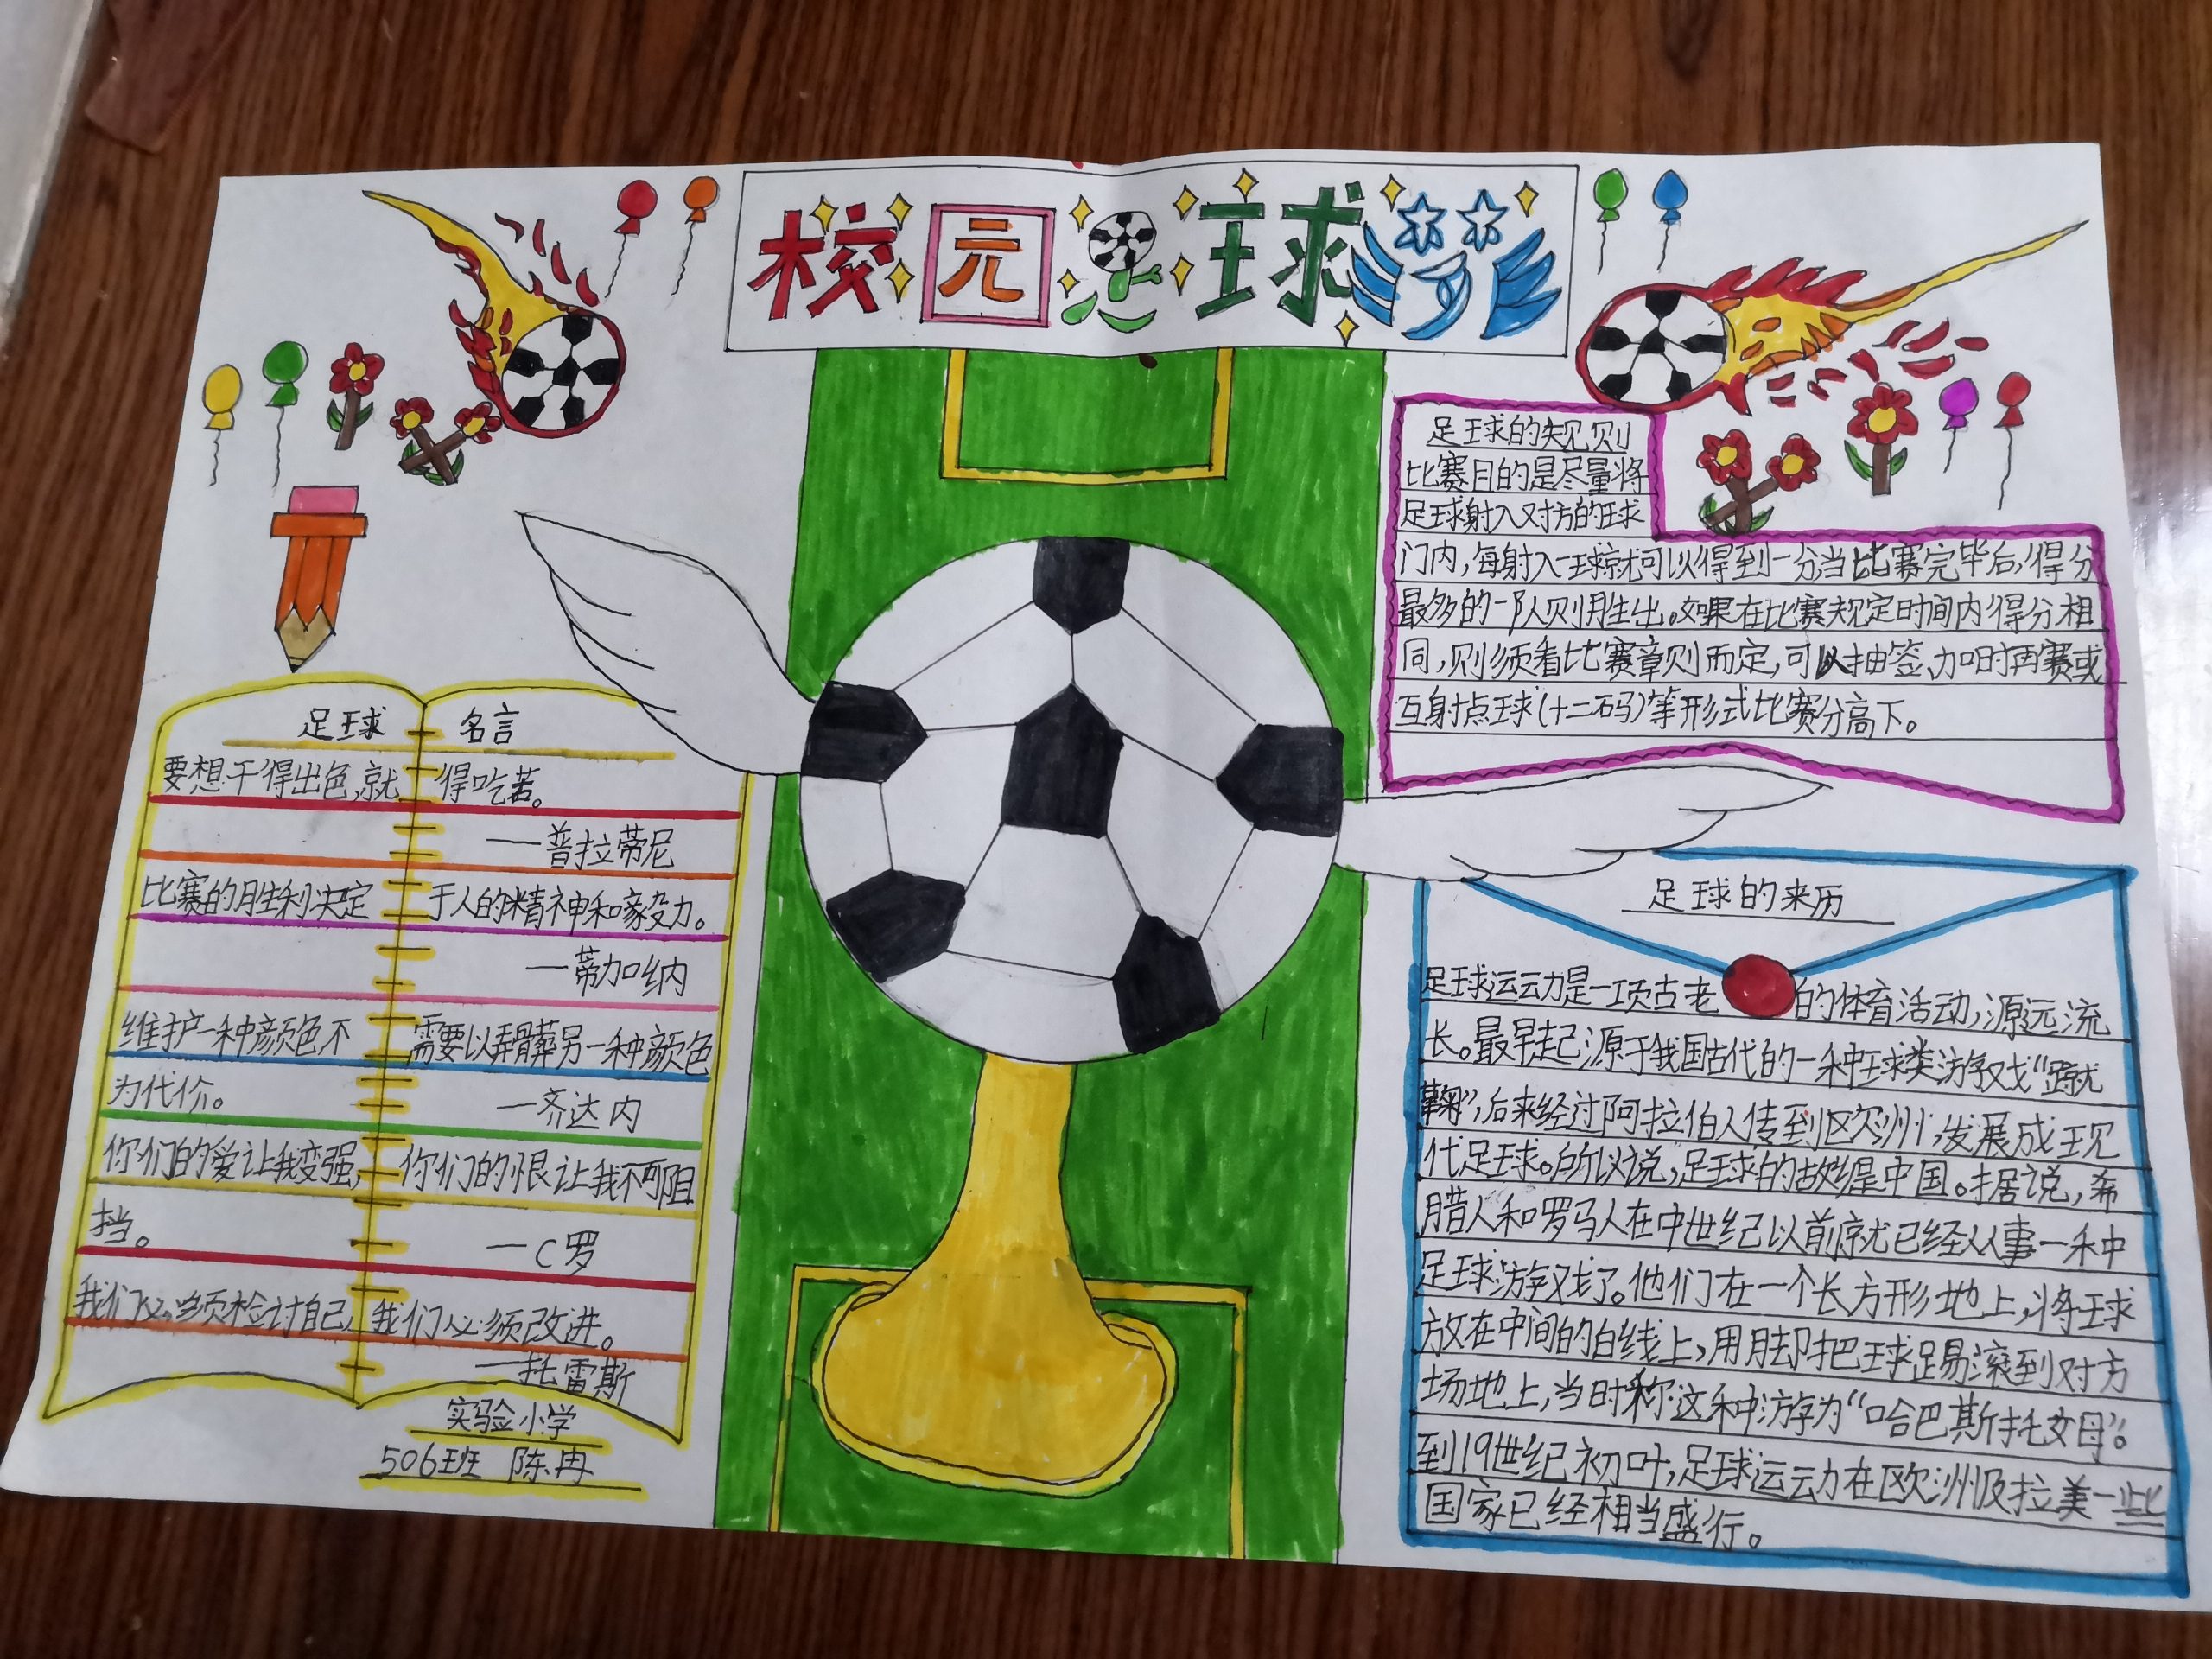 校园足球梦
足球名言
要想干得出色,就得吃苦。
——普拉蒂尼
比赛的胜利决定于人的精神和毅力。
——蒂加纳
维护一种颜色不需要以弄脏葬另一种颜色
为代价。 —齐达内
你们的爱让我变强,你们的恨让我不可阻
挡。 —C罗
我们必须检讨自己,我们必须改进。
——托雷斯
实验小学
506班 陈冉
足球的规则
比赛目的是尽量将
足球射入对方的球
门内,每射入一球就可以得到一分,当比赛完毕后,得分
最多的一队则胜出。如果在比赛规定时间内得分相
同,则须看比赛章则而定,可以抽签、加时再赛或
互射点球(十二码)等形式比赛分高下。
足球的来历
足球运动是一项古老的体育活动,源远流
长。最早起源于我国古代的一种球类游戏“蹴
鞠”,后来经过阿拉伯人传到欧洲,发展成现
代足球。所以说,足球的故乡是中国。据说,希
腊人和罗马人在中世纪以前就已经从事一种
足球游戏了。他们在一个长方形地上,将球
放在中间的白线上,用脚把球踢滚到对方
场地上,当时称这种游为“哈巴斯托文母”。
到19世纪初叶,足球运动在欧洲及拉美一些
国家已经相当盛行。